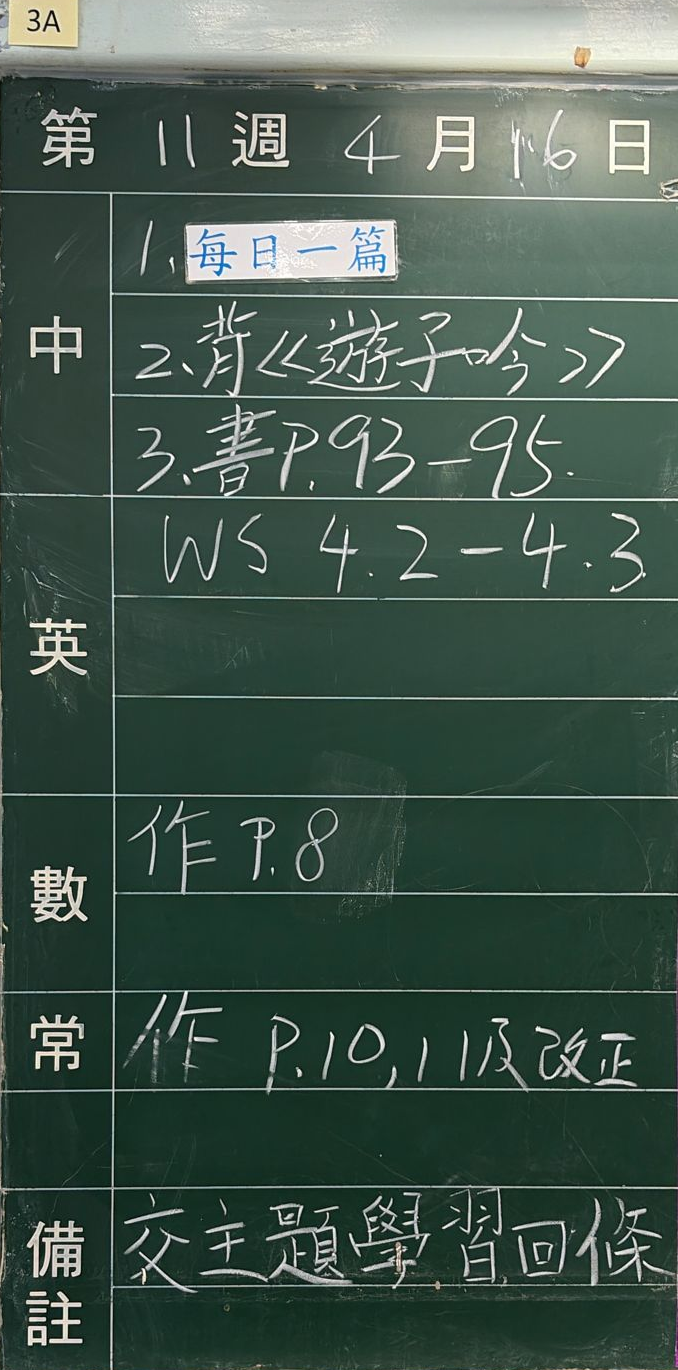 3A
第 11 週 4 月 16 日
中
1. 每日一篇
2. 背《遊子吟》
3. 書P.93-95.
英
WS 4.2-4.3
數
作 P.8
常
作 P.10,11及改正
備註
交主題學習回條